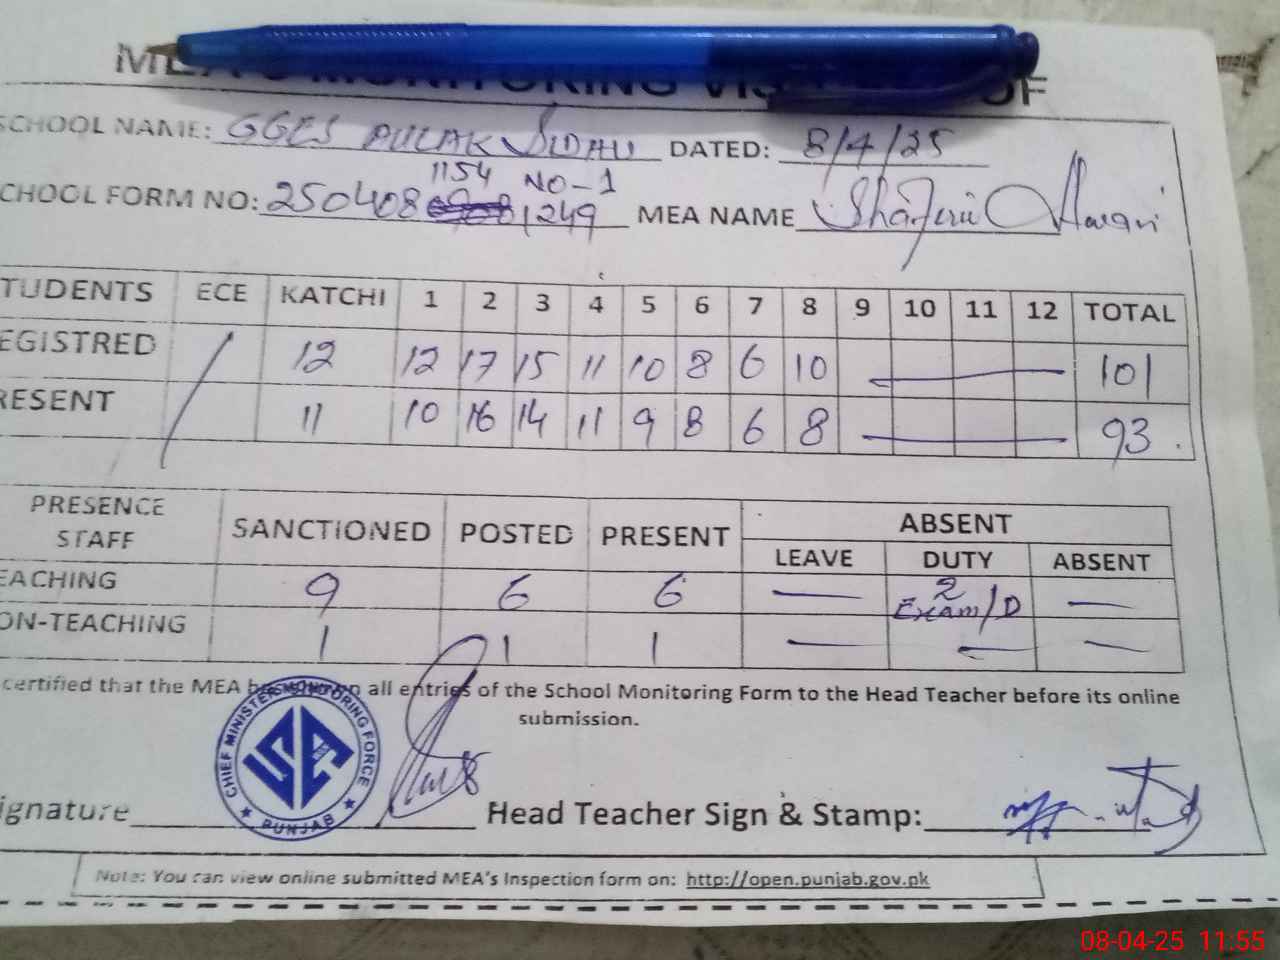 SCHOOL NAME: GGES PULAK SIDHU DATED: 8/4/25
1154 NO-1
CHOOL FORM NO: 250408 1249 MEA NAME
TUDENTS ECE KATCHI 1 2 3 4 5 6 7 8 9 10 11 12 TOTAL
EGISTRED 12 12 17 15 11 10 8 6 10 101
RESENT 11 10 16 14 11 9 8 6 8 93
PRESENCE STAFF SANCTIONED POSTED PRESENT ABSENT
LEAVE DUTY ABSENT
EACHING 9 6 6 — 2 Exam/D —
ON-TEACHING 1 1 1 — — —
certified that the MEA all entries of the School Monitoring Form to the Head Teacher before its online
submission.
CHIEF MINISTER'S MONITORING FORCE
PUNJAB
ignature Head Teacher Sign & Stamp:
Note: You can view online submitted MEA's Inspection form on: http://open.punjab.gov.pk
08-04-25 11:55